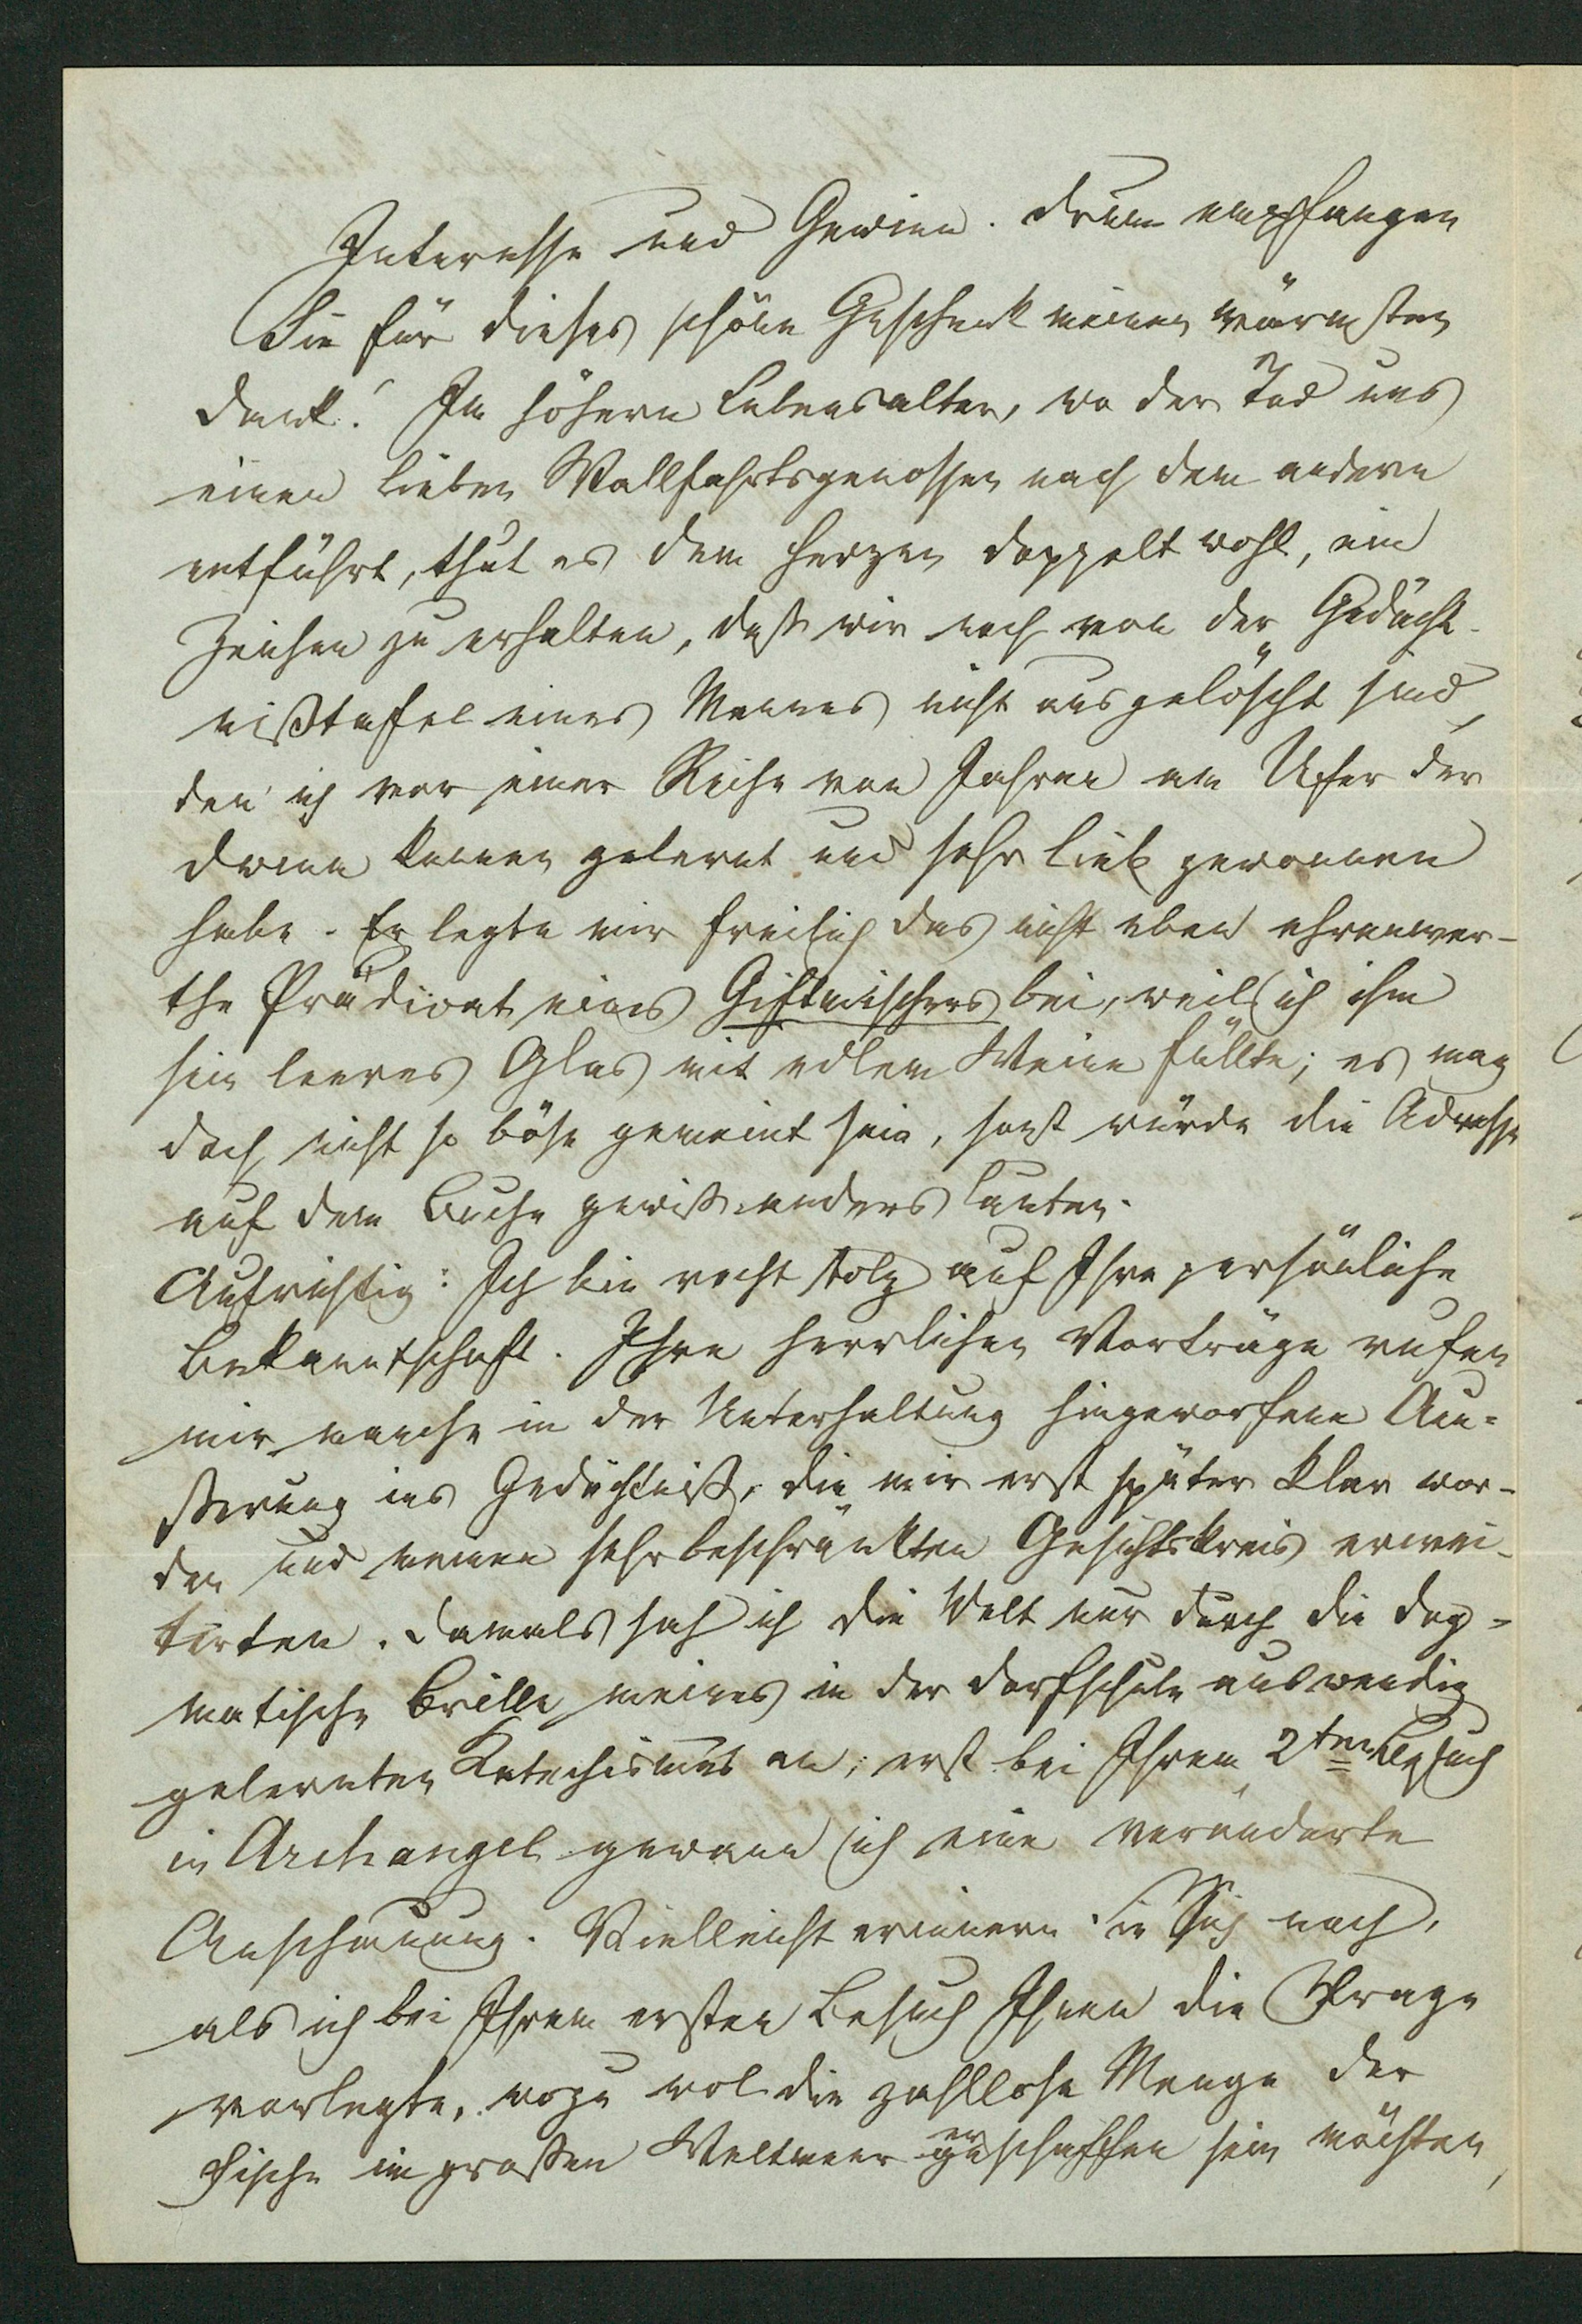 Interesse und Gewinn. Drum empfangen
Sie für dieses schöne Geschenk meinen wärmsten
Dank! Im höhern Lebensalter, wo der Tod uns
einen lieben Wallfahrtsgenossen nach dem andern
entführt, thut es dem Herzen doppelt wohl, ein
Zeichen zu erhalten, daß wir noch von der Gedächt-
nißtafel eines Mannes nicht ausgelöscht sind,
den ich vor einer Reihe von Jahren am Ufer der
Dwina kennen gelernt und sehr lieb gewonnen
habe. Er legte mir freilich das nicht eben ehrenwer-
the Prädicat eines Giftmischers bei, weil ich ihm
sein leeres Glas mit edlem Weine füllte; es mag
doch nicht so böse gemeint sein, sonst würde die Adresse
auf dem Buche gewiß anders lauten.
Aufrichtig: Ich bin recht stolz auf Ihre persönliche
Bekanntschaft. Ihre herrlichen Vorträge rufen
mir manche in der Unterhaltung hingeworfene Äu-
ßerung ins Gedächtniß, die mir erst später klar wor-
den und meinen sehr beschränkten Gesichtskreis erwei-
terten. Damals sah ich die Welt nur durch die dog-
matische Brille meines in der Dorfschule auswendig
gelernten Katechismus an; erst bei Ihrem 2ten Besuch
in Archangel gewann ich eine veränderte
Anschauung. Vielleicht erinnern Sie Sich noch,
als ich bei Ihrem ersten Besuch Ihnen die Frage
vorlegte, wozu wol die zahllose Menge der
Fische im großen Weltmeer erschaffen sein möchten,